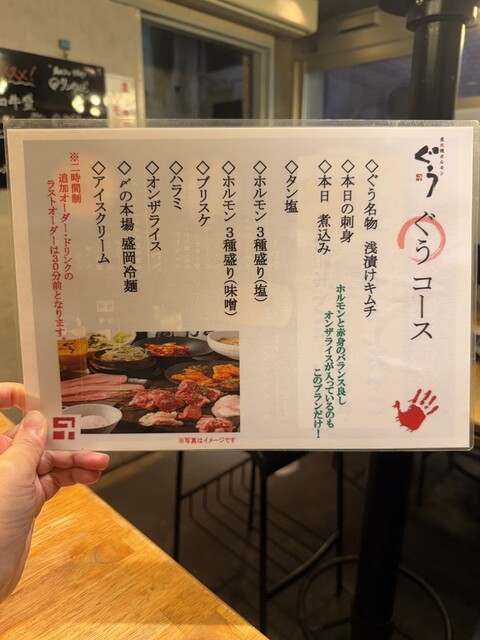 ぐう
ぐう コース
◇ぐう名物 浅漬けキムチ
◇本日の刺身
◇本日 煮込み
ホルモンと赤身のバランス良し
オンザライスが入っているのも
このプランだけ!
◇タン塩
◇ホルモン3種盛り(塩)
◇ホルモン3種盛り(味噌)
◇ブリスケ
◇ハラミ
◇オンザライス
◇〆の本場 盛岡冷麺
◇アイスクリーム
※二時間制
追加オーダー・ドリンクの
ラストオーダーは30分前となります。
※写真はイメージです